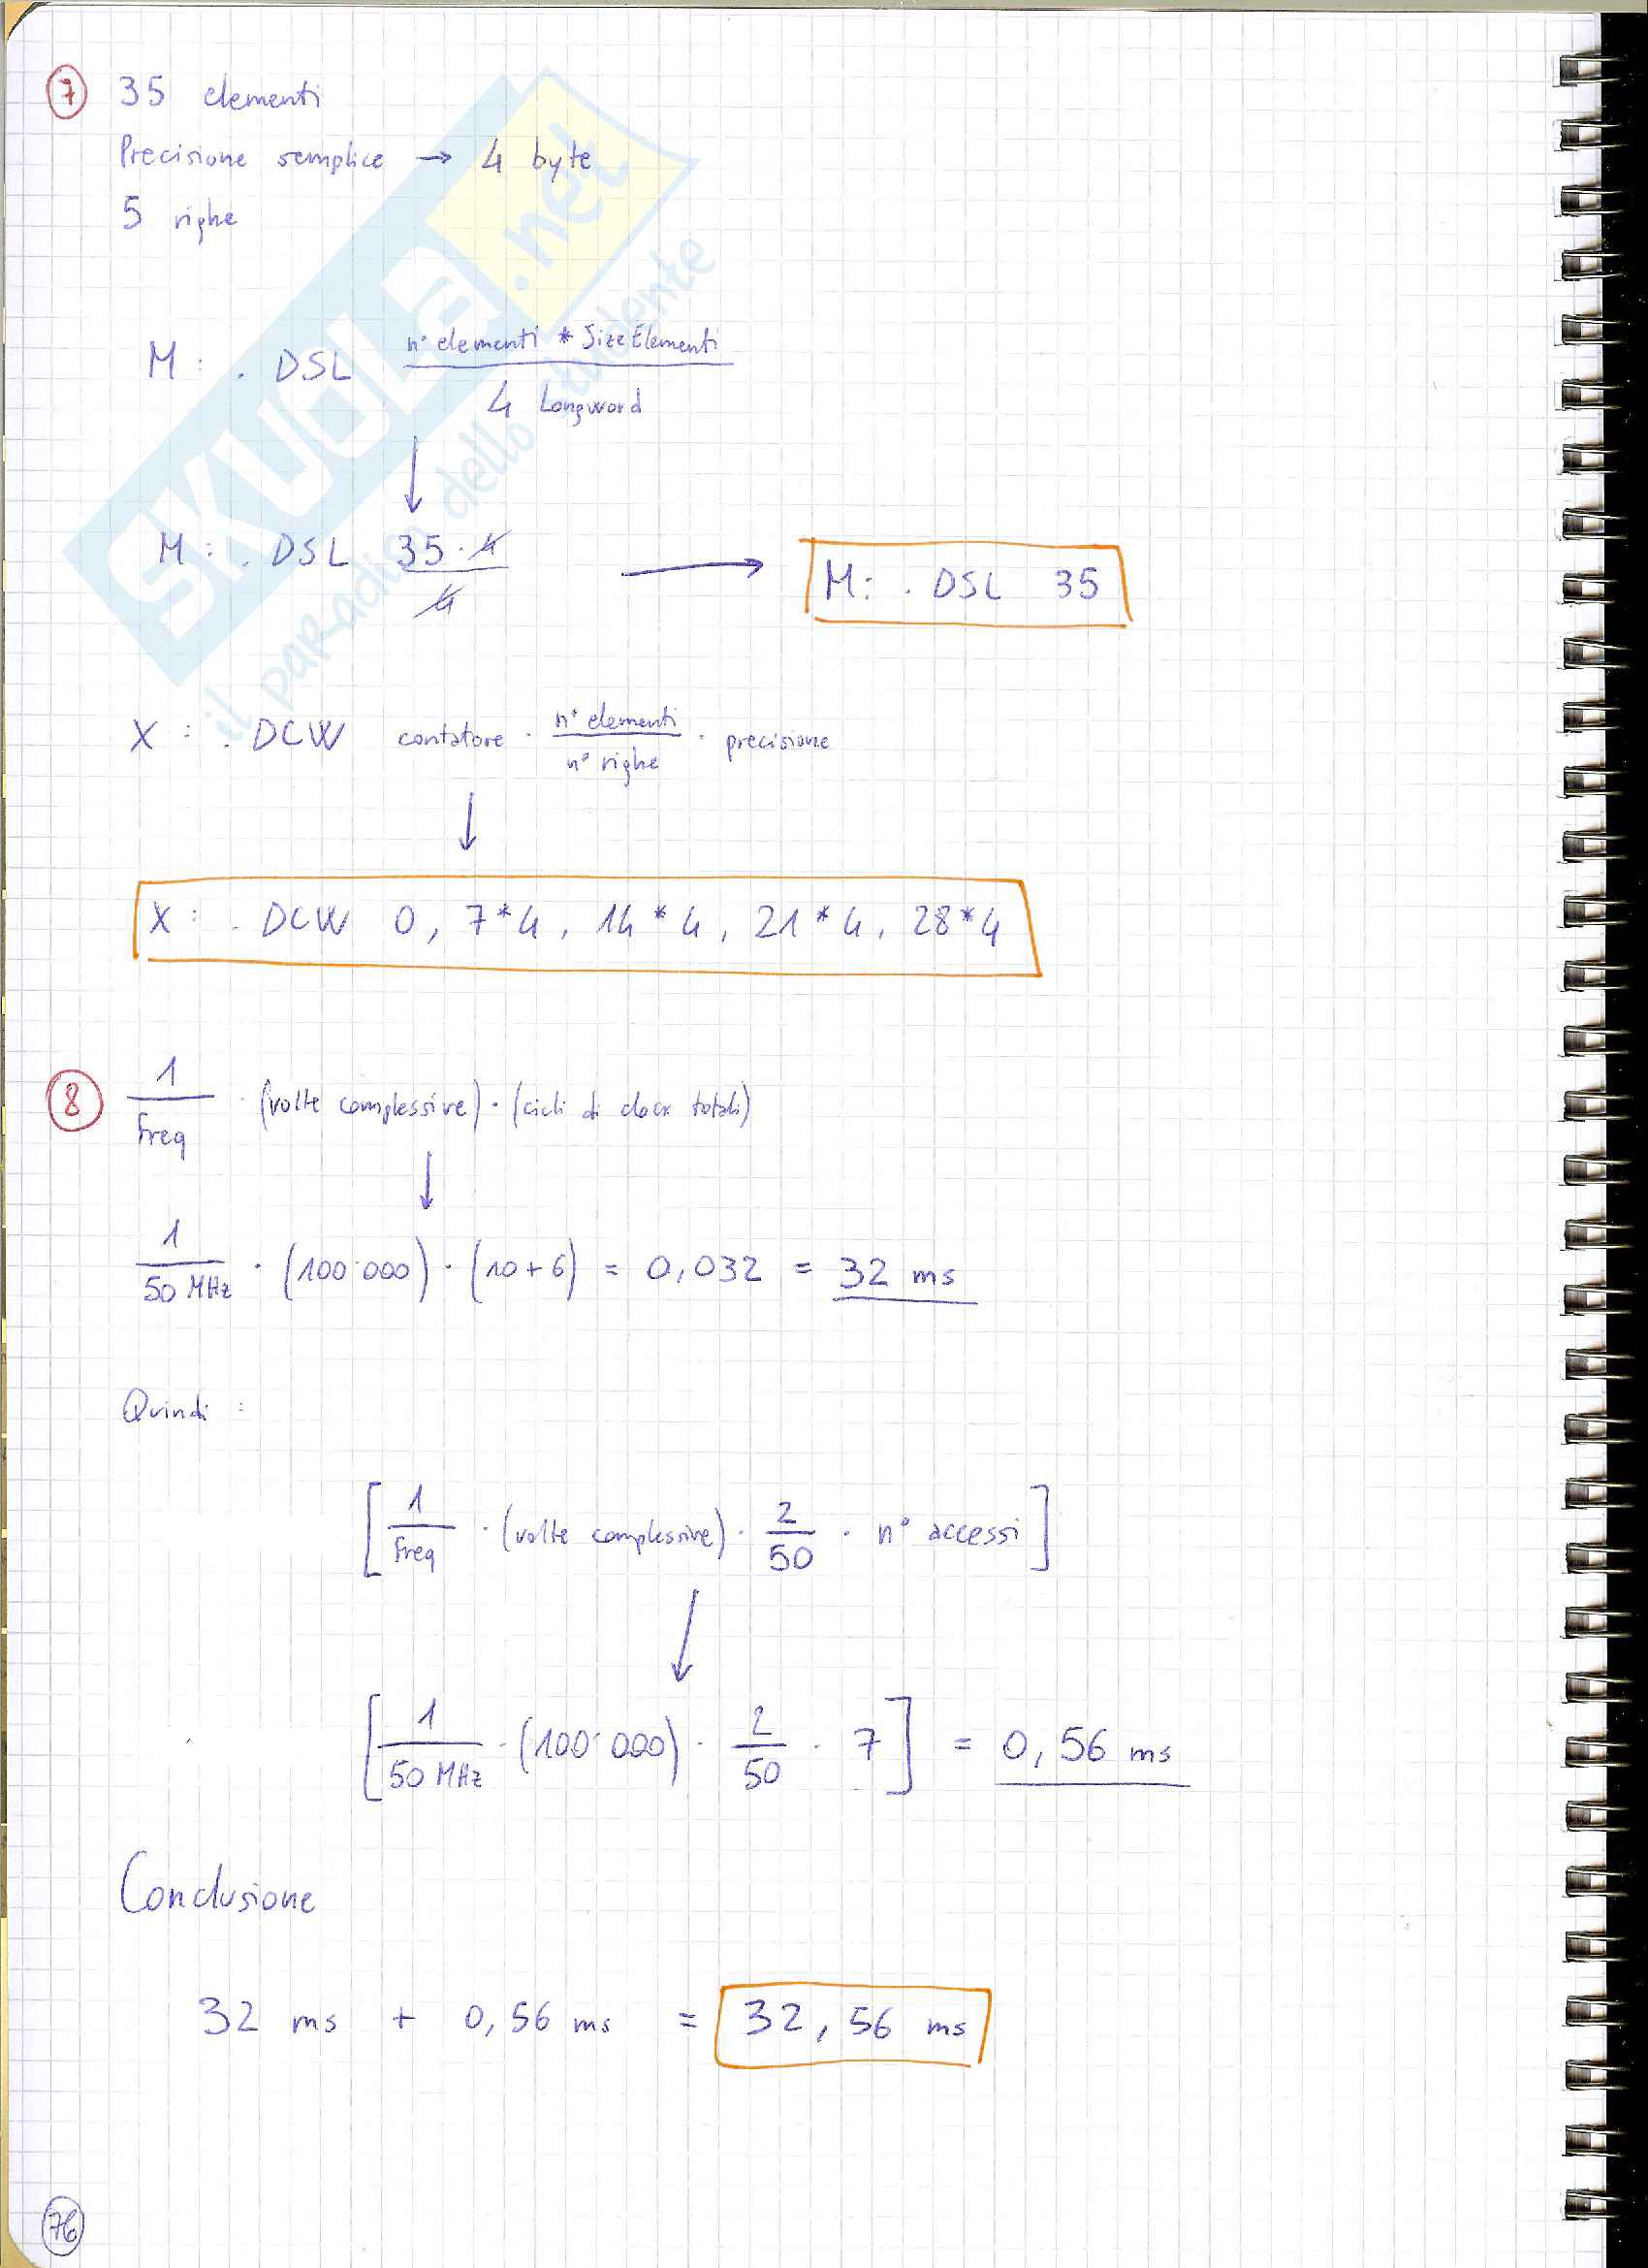 7 35 elementi
Precisione semplice → 4 byte
5 righe
M: .DSL n° elementi * SizeElementi / 4 Longword
↓
M: .DSL 35·4 / 4 → M: .DSL 35
X: .DCW contatore · n° elementi / n° righe · precisione
↓
X: .DCW 0, 7*4, 14*4, 21*4, 28*4
8 1/Freq · (volte complessive) · (cicli di clock totali)
↓
1/50 MHz · (100'000) · (10+6) = 0,032 = 32 ms
Quindi:
[1/Freq · (volte complessive) · 2/50 · n° accessi]
↓
[1/50 MHz · (100'000) · 2/50 · 7] = 0,56 ms
Conclusione
32 ms + 0,56 ms = 32,56 ms
76
SKUOLA.net
il paradiso dello studente